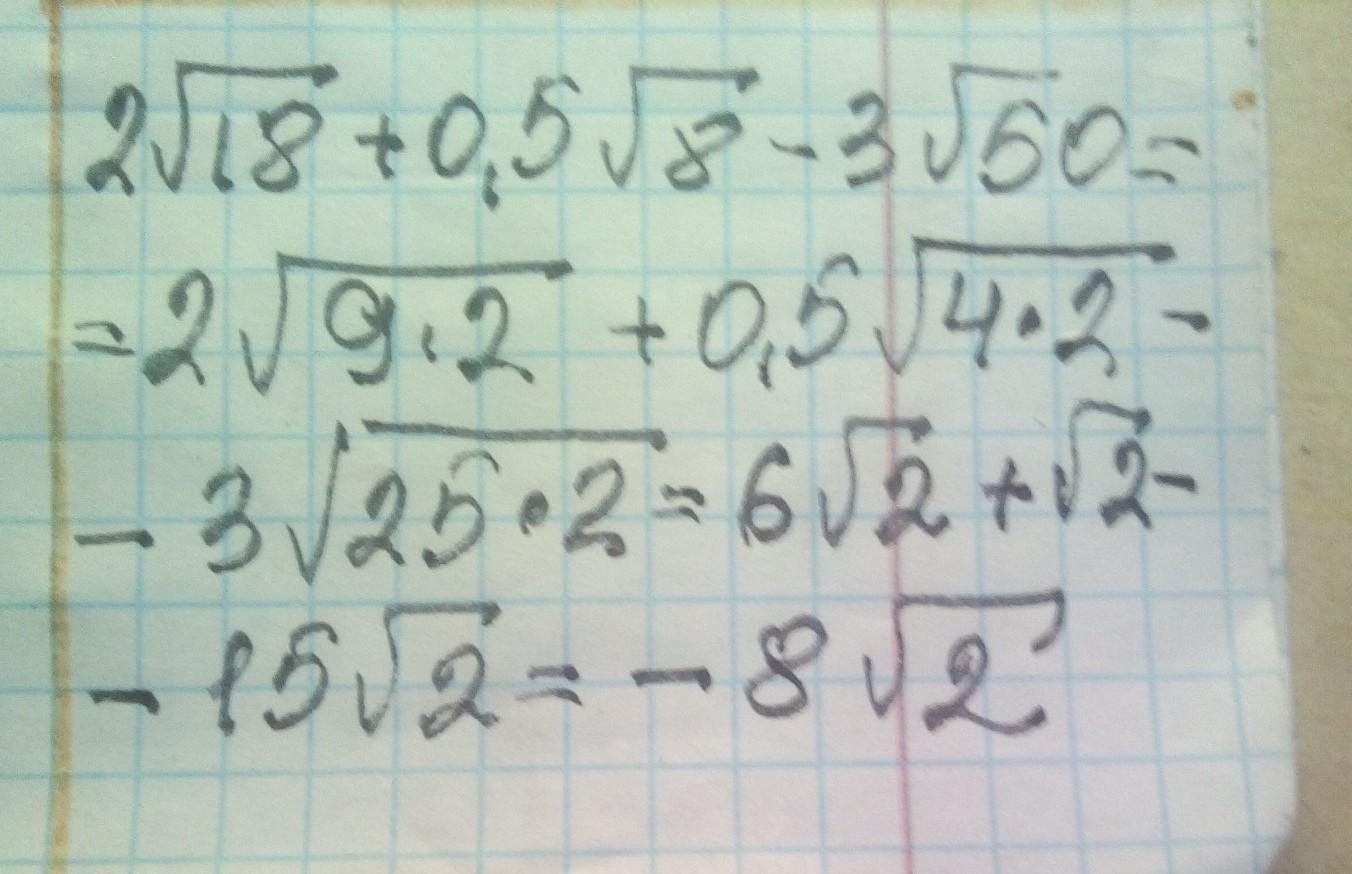 2√18 + 0,5√8 - 3√50 =
= 2√9·2 + 0,5√4·2 -
- 3√25·2 = 6√2 + √2 -
- 15√2 = - 8√2